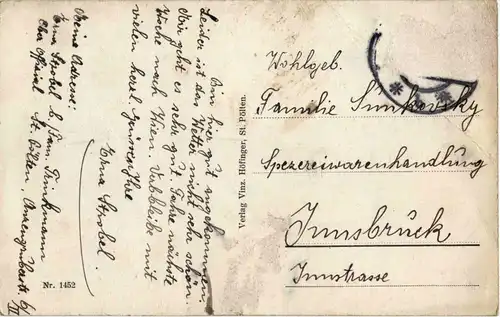 Bin hier gut angekommen.
Leider ist das Wetter nicht sehr schön.
Mir geht es sehr gut. Fahre nächste
Woche nach Wien. Verbleibe mit
vielen herzl. Grüssen Ihre
Erna Strobel.
Meine Adresse:
Erna Strobel b. Fam.
St. Pölten,
Verlag Vinz. Höfinger, St. Pölten.
Nr. 1452
Wohlgeb.
Familie Sunkovsky
Spezereiwarenhandlung
Innsbrück
Innstrasse